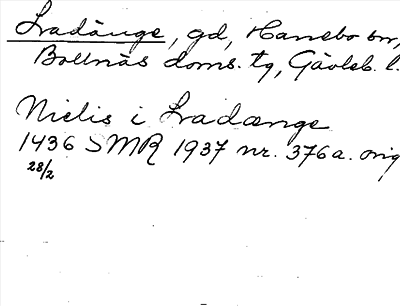 Lradänge, gd, Hanebo sn,
Bollnäs doms. tg, Gävleb. l.
Nielis i Lradænge
1436 SMR 1937 nr. 376a. orig
28/2